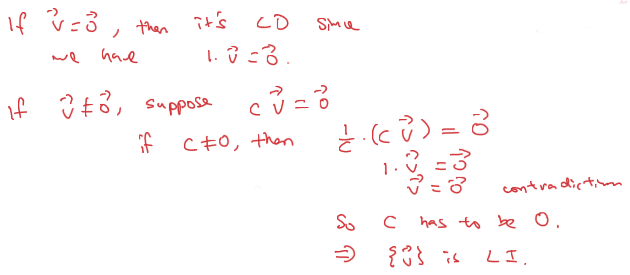 If v⃗ = 0⃗, then it's LD since
we have 1. v⃗ = 0⃗.
If v⃗ ≠ 0⃗, suppose c v⃗ = 0⃗
if c ≠ 0, then 1/c · (c v⃗) = 0⃗
1. v⃗ = 0⃗
v⃗ = 0⃗ contradiction
So c has to be 0.
⇒ {v⃗} is LI.